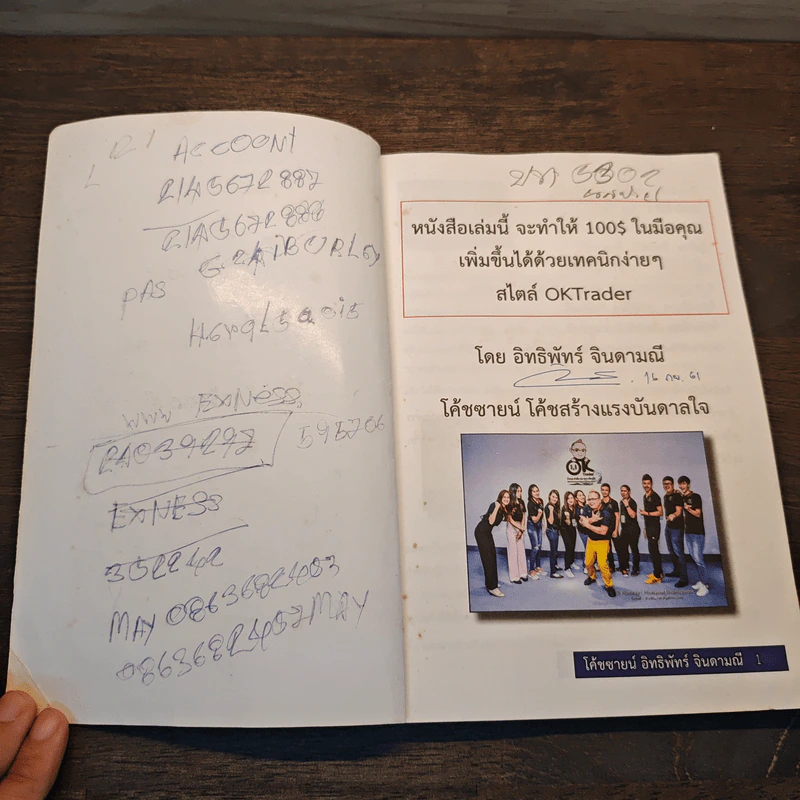 ACCOUNT
2145672887
2145672888
PAS
WWW EXNESS
24039297 595706
EXNESS
352242
MAY 0863682453
0863682457 MAY
หนังสือเล่มนี้ จะทำให้ 100$ ในมือคุณ
เพิ่มขึ้นได้ด้วยเทคนิกง่ายๆ
สไตล์ OKTrader
โดย อิทธิพัทร์ จินดามณี
16 กย. 61
โค้ชซายน์ โค้ชสร้างแรงบันดาลใจ
OK
Trader
โค้ชซายน์ อิทธิพัทร์ จินดามณี 1